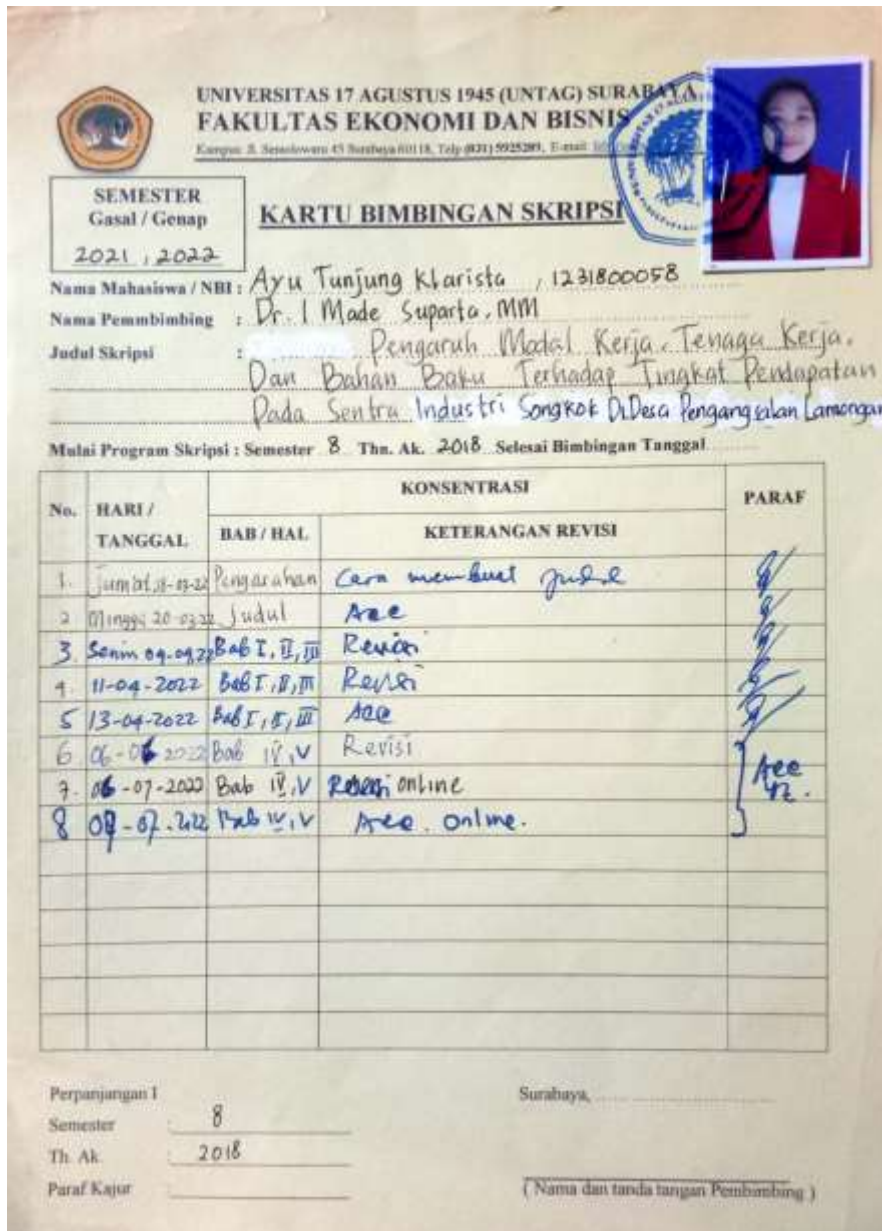 UNIVERSITAS 17 AGUSTUS 1945 (UNTAG) SURABAYA
FAKULTAS EKONOMI DAN BISNIS
Kampus: Jl. Semolowaru 45 Surabaya 60118, Telp (031) 5925289, E-mail:
SEMESTER
Gasal / Genap
2021 , 2022
KARTU BIMBINGAN SKRIPSI
Nama Mahasiswa / NBI : Ayu Tunjung Klarista , 1231800058
Nama Pemmbimbing : Dr. I Made Suparta, MM
Judul Skripsi : Pengaruh Modal Kerja, Tenaga Kerja,
Dan Bahan Baku Terhadap Tingkat Pendapatan
Pada Sentra Industri Songkok Di Desa Pengangsalan Lamongan
Mulai Program Skripsi : Semester 8 Thn. Ak. 2018 Selesai Bimbingan Tanggal
No. HARI / TANGGAL KONSENTRASI PARAF
BAB / HAL KETERANGAN REVISI
1. Jumat, 18-03-22 Pengarahan Cara membuat judul
2 Minggu 20-03-22 Judul Acc
3. Senin 04-04-22 Bab I, II, III Revisi
4. 11-04-2022 Bab I, II, III Revisi
5 13-04-2022 Bab I, II, III Acc
6 06-06-2022 Bab IV, V Revisi
7. 06-07-2022 Bab IV, V Revisi online
8 07-07-2022 Bab IV, V Acc. online.
Acc
Perpanjangan I
Surabaya,
Semester : 8
Th. Ak. : 2018
Paraf Kajur :
( Nama dan tanda tangan Pembimbing )